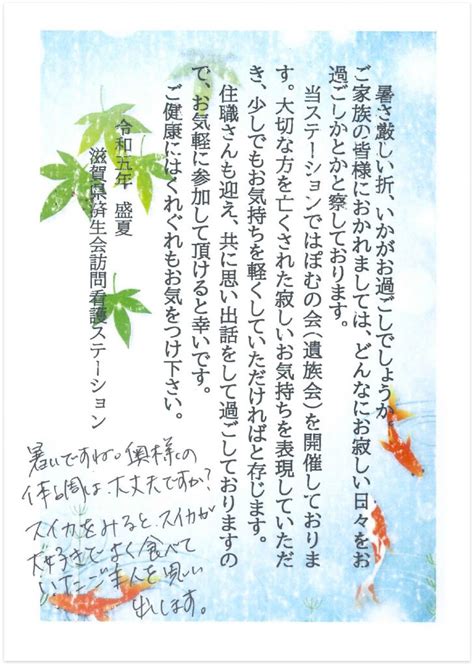 暑さ厳しい折、いかがお過ごしでしょうか。
ご家族の皆様におかれましては、どんなにお寂しい日々をお
過ごしかとかと察しております。
当ステーションではぽむの会（遺族会）を開催しておりま
す。大切な方を亡くされた寂しいお気持ちを表現していただ
き、少しでもお気持ちを軽くしていただければと存じます。
住職さんも迎え、共に思い出話をして過ごしておりますの
で、お気軽に参加して頂けると幸いです。
ご健康にはくれぐれもお気をつけ下さい。
令和五年 盛夏
滋賀県済生会訪問看護ステーション
暑いですね。奥様の
体調は、大丈夫ですか？
スイカをみると、スイカが
大好きで、よく食べて
いたご主人を思い
出します。